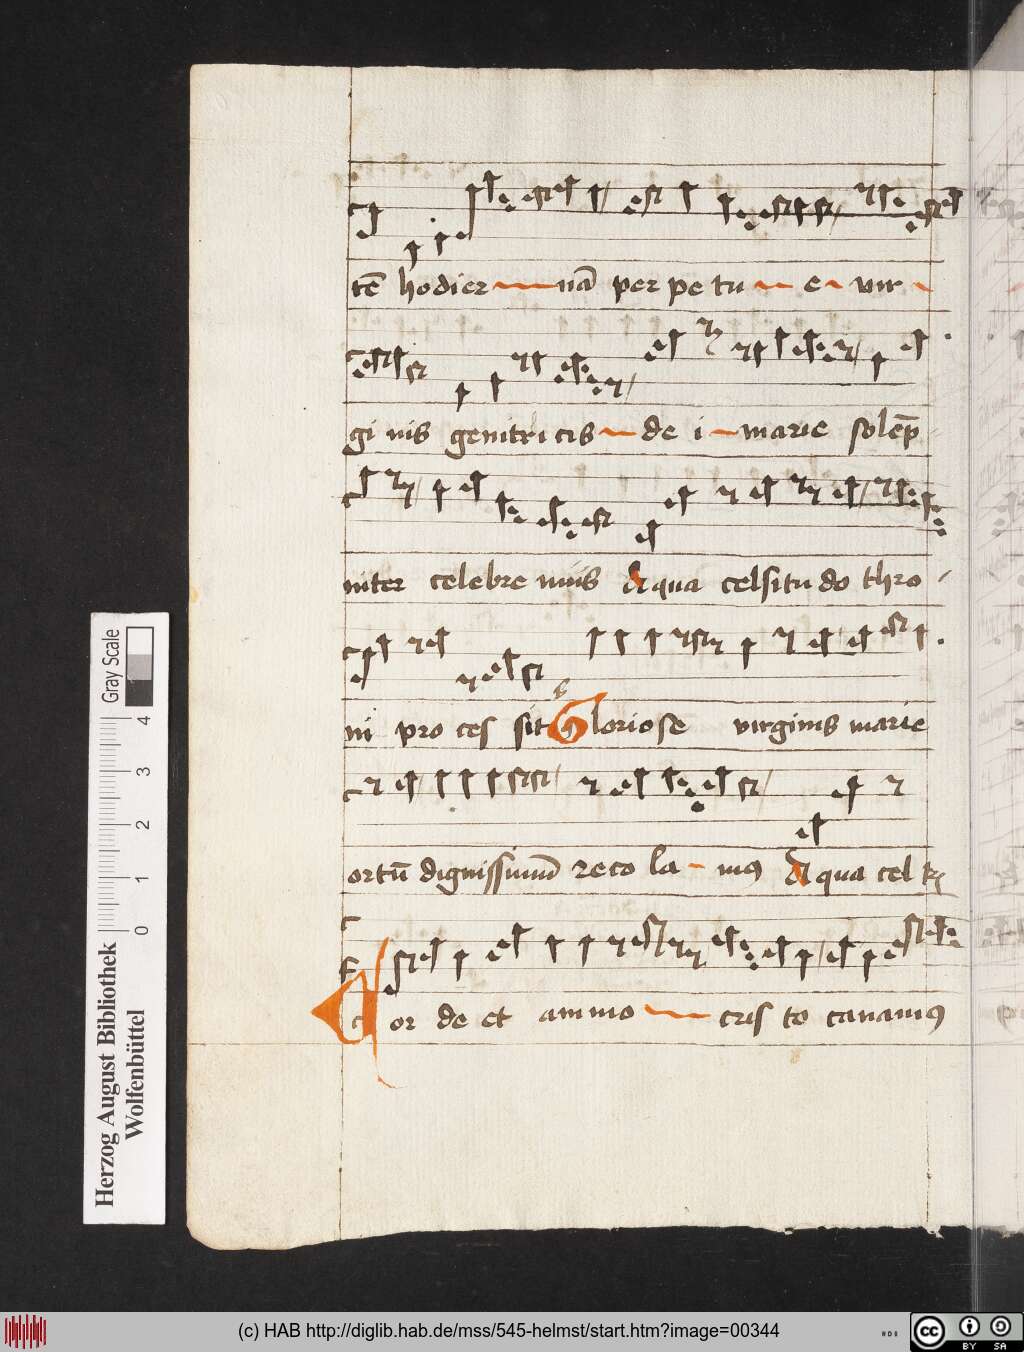 tē hodier nā per pe tu e vir
gi nis genitri cis de i marie solēp
niter celebre mus A qua celsitu do thro
ni pro ces sit Gloriose virginis marie
ortū dignissimū reco la mus A qua cel
Cor de et animo cris to canamus
Herzog August Bibliothek
Wolfenbüttel
0 1 2 3 4
Gray Scale
(c) HAB http://diglib.hab.de/mss/545-helmst/start.htm?image=00344
HAB
cc BY SA